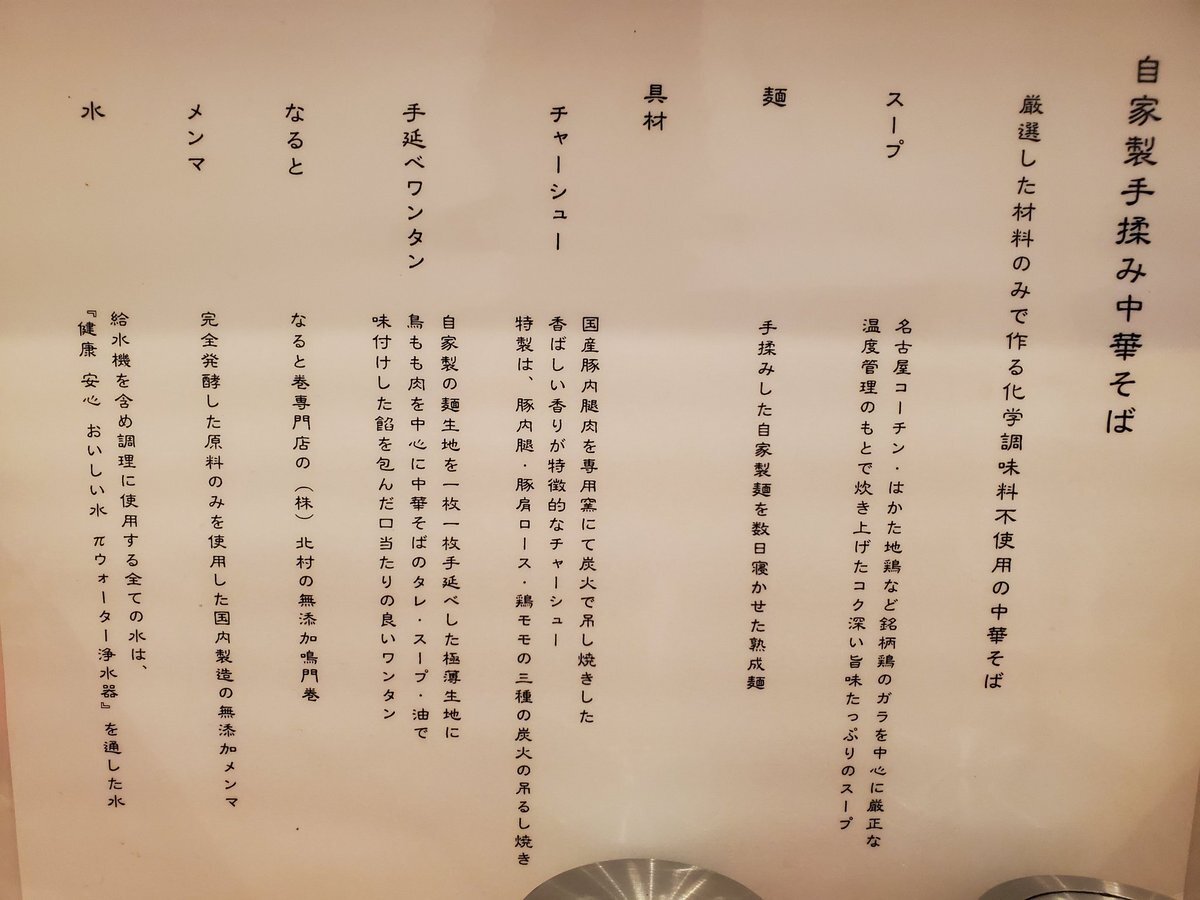 自家製手揉み中華そば
厳選した材料のみで作る化学調味料不使用の中華そば
スープ
名古屋コーチン・はかた地鶏など銘柄鶏のガラを中心に厳正な
温度管理のもとで炊き上げたコク深い旨味たっぷりのスープ
麺
手揉みした自家製麺を数日寝かせた熟成麺
具材
チャーシュー
国産豚内腿肉を専用窯にて炭火で吊し焼きした
香ばしい香りが特徴的なチャーシュー
特製は、豚内腿・豚肩ロース・鶏モモの三種の炭火の吊るし焼き
手延べワンタン
自家製の麺生地を一枚一枚手延べした極薄生地に
鳥もも肉を中心に中華そばのタレ・スープ・油で
味付けした餡を包んだ口当たりの良いワンタン
なると
なると巻専門店の（株）北村の無添加鳴門巻
メンマ
完全発酵した原料のみを使用した国内製造の無添加メンマ
水
給水機を含め調理に使用する全ての水は、
『健康 安心 おいしい水 πウォーター浄水器』を通した水